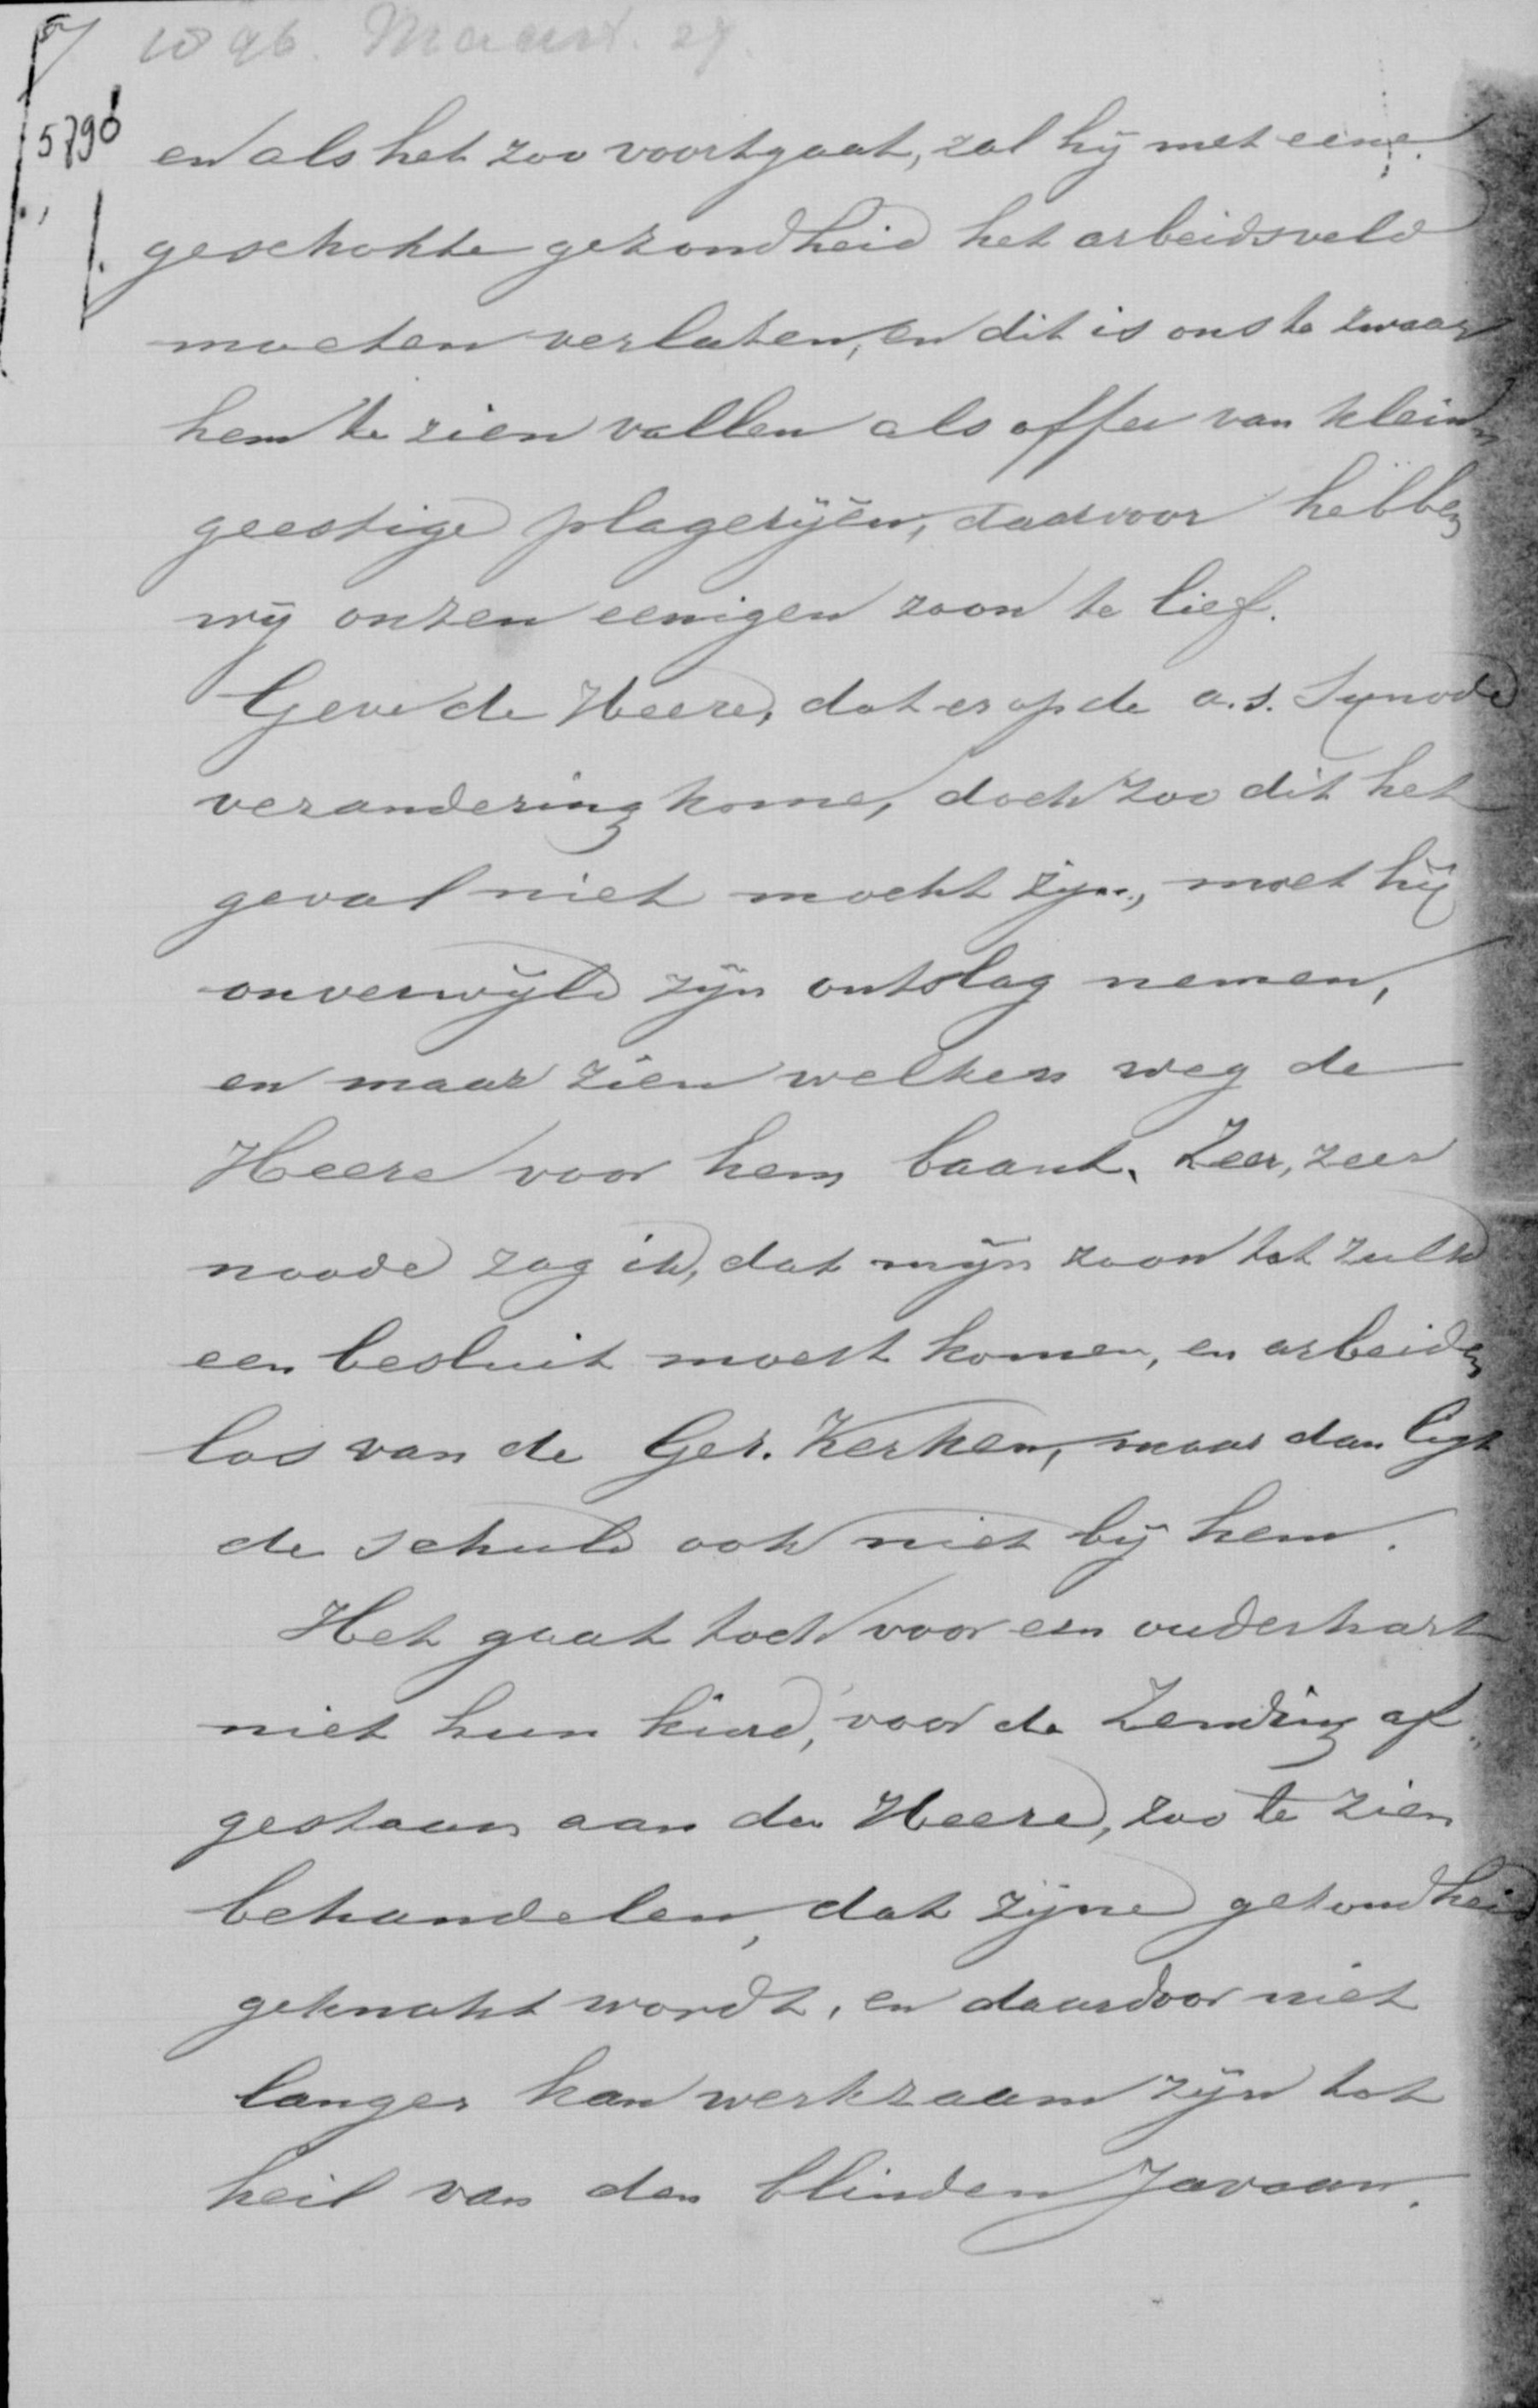 1896. Maart. 27.
5796
en als het zoo voortgaat, zal hij met eene
geschokte gezondheid het arbeidsveld
moeten verlaten, en dit is ons te zwaar
hem te zien vallen als offer van klein„
geestige plagerijën, daarvoor hebben
wij onzen eenigen zoon te lief.
Geve de Heere, dat er op de a.s. Synode
verandering kome, doch zoo dit het
geval niet mocht zijn, moet hij
onverwijld zijn ontslag nemen,
en maar zien welken weg de
Heere voor hem baant. Zeer, zeer
noode zag ik, dat mijn zoon tot zulk
een besluit moest komen, en arbeiden
los van de Ger. Kerken, maar dan ligt
de schuld ook niet bij hem.
Het gaat toch voor een ouderhart
niet hun kind, voor de Zending af„
gestaan aan den Heere, zoo te zien
behandelen, dat zijne gezondheid
geknakt wordt, en daardoor niet
langer kan werkzaam zijn tot
heil van den blinden Javaan.